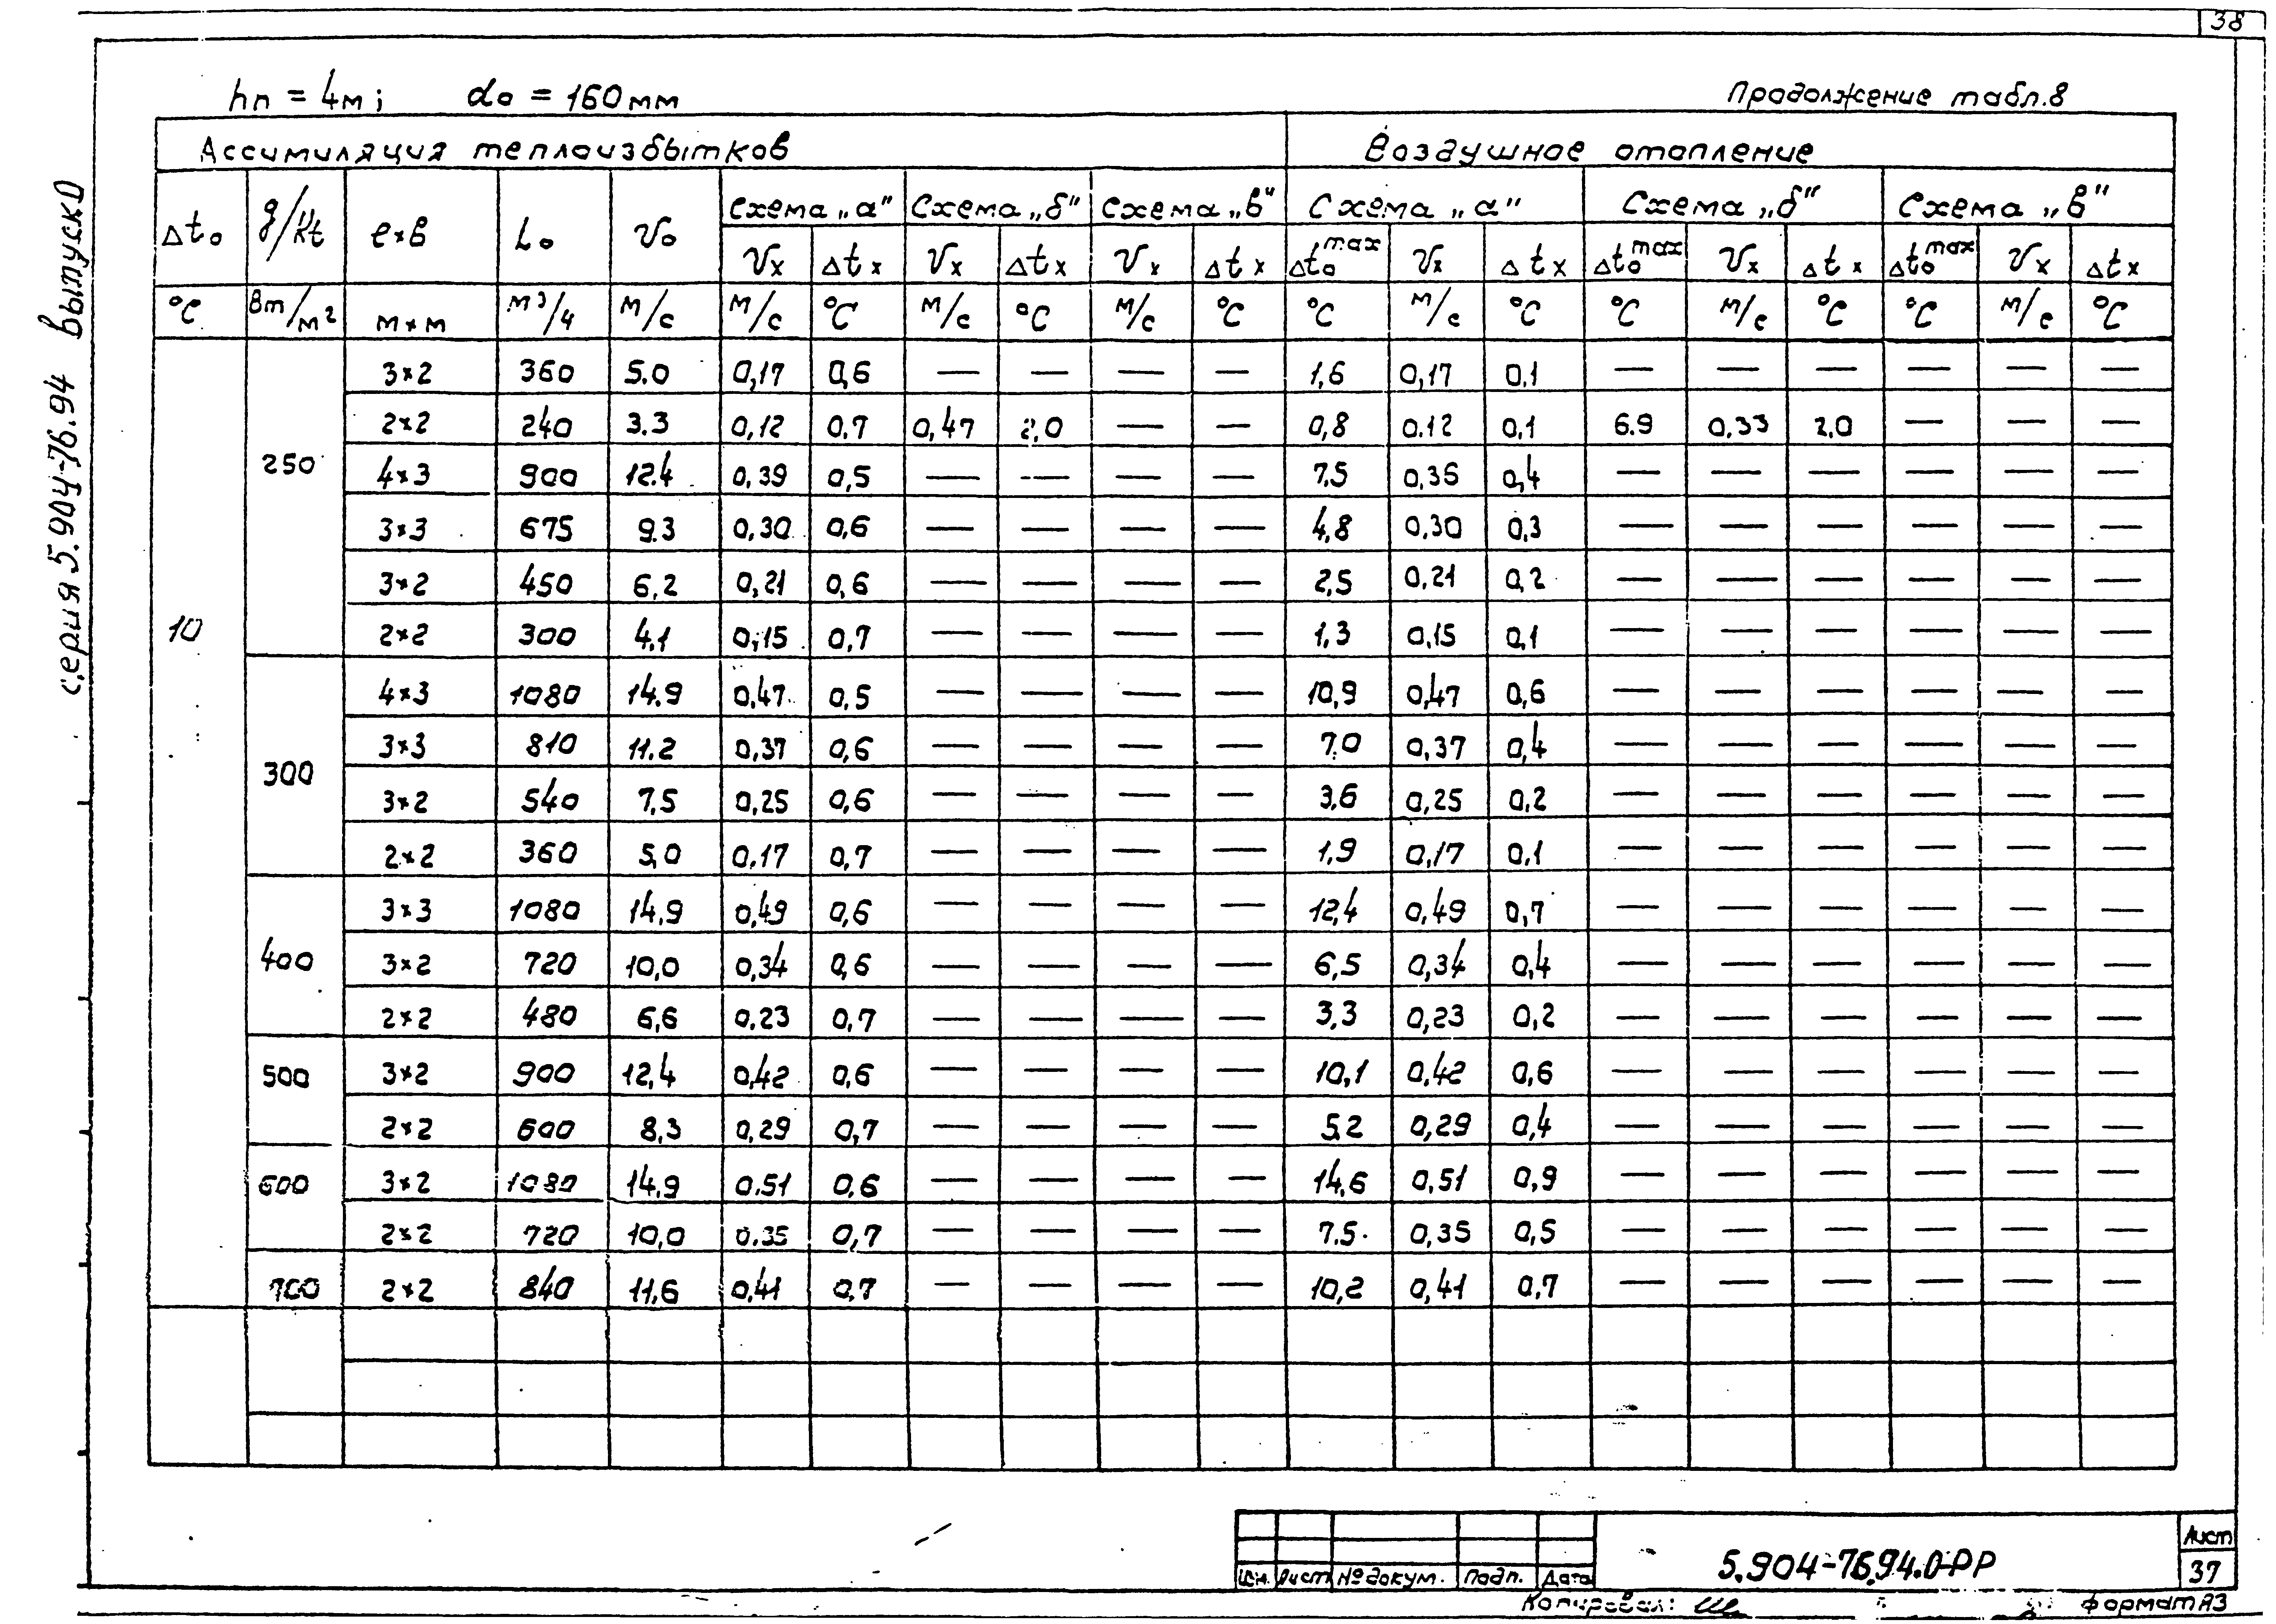 38
серия 5.904-76.94 Выпуск 0
hп = 4м; do = 160мм
Продолжение табл.8
Ассимиляция теплоизбытков Воздушное отопление
Δto g/Kt e×в Lo Vo Схема „а" Схема „б" Схема „в" Схема „а" Схема „б" Схема „в"
Vx Δtx Vx Δtx Vx Δtx Δto max Vx Δtx Δto max Vx Δtx Δto max Vx Δtx
°C Вт/м² м×м м³/ч м/с м/с °C м/с °C м/с °C °C м/с °C °C м/с °C °C м/с °C
10
250
3×2 360 5.0 0,17 0,6 — — — — 1,6 0,17 0,1 — — — — — —
2×2 240 3.3 0,12 0.7 0,47 2,0 — — 0,8 0.12 0,1 6.9 0,33 2,0 — — —
4×3 900 12.4 0,39 0,5 — — — — 7,5 0,36 0,4 — — — — — —
3×3 675 9.3 0,30 0,6 — — — — 4,8 0,30 0,3 — — — — — —
3×2 450 6,2 0,21 0,6 — — — — 2,5 0,21 0,2 — — — — — —
2×2 300 4,1 0,15 0,7 — — — — 1,3 0,15 0,1 — — — — — —
300
4×3 1080 14.9 0,47 0,5 — — — — 10,9 0,47 0,6 — — — — — —
3×3 810 11.2 0,37 0,6 — — — — 7.0 0,37 0,4 — — — — — —
3×2 540 7,5 0,25 0,6 — — — — 3,6 0,25 0,2 — — — — — —
2×2 360 5,0 0,17 0,7 — — — — 1,9 0,17 0,1 — — — — — —
400
3×3 1080 14,9 0,49 0,6 — — — — 12,4 0,49 0,7 — — — — — —
3×2 720 10,0 0,34 0,6 — — — — 6,5 0,34 0,4 — — — — — —
2×2 480 6,6 0,23 0,7 — — — — 3,3 0,23 0,2 — — — — — —
500
3×2 900 12,4 0,42 0,6 — — — — 10,1 0,42 0,6 — — — — — —
2×2 600 8,3 0,29 0,7 — — — — 5,2 0,29 0,4 — — — — — —
600
3×2 1080 14,9 0.51 0,6 — — — — 14,6 0,51 0,9 — — — — — —
2×2 720 10,0 0.35 0,7 — — — — 7.5 0,35 0,5 — — — — — —
700
2×2 840 11,6 0,41 0,7 — — — — 10,2 0,41 0,7 — — — — — —
Изм. Лист № докум. Подп. Дата
5.904-76.94.0-РР
Лист
37
Копировал:
Формат А3